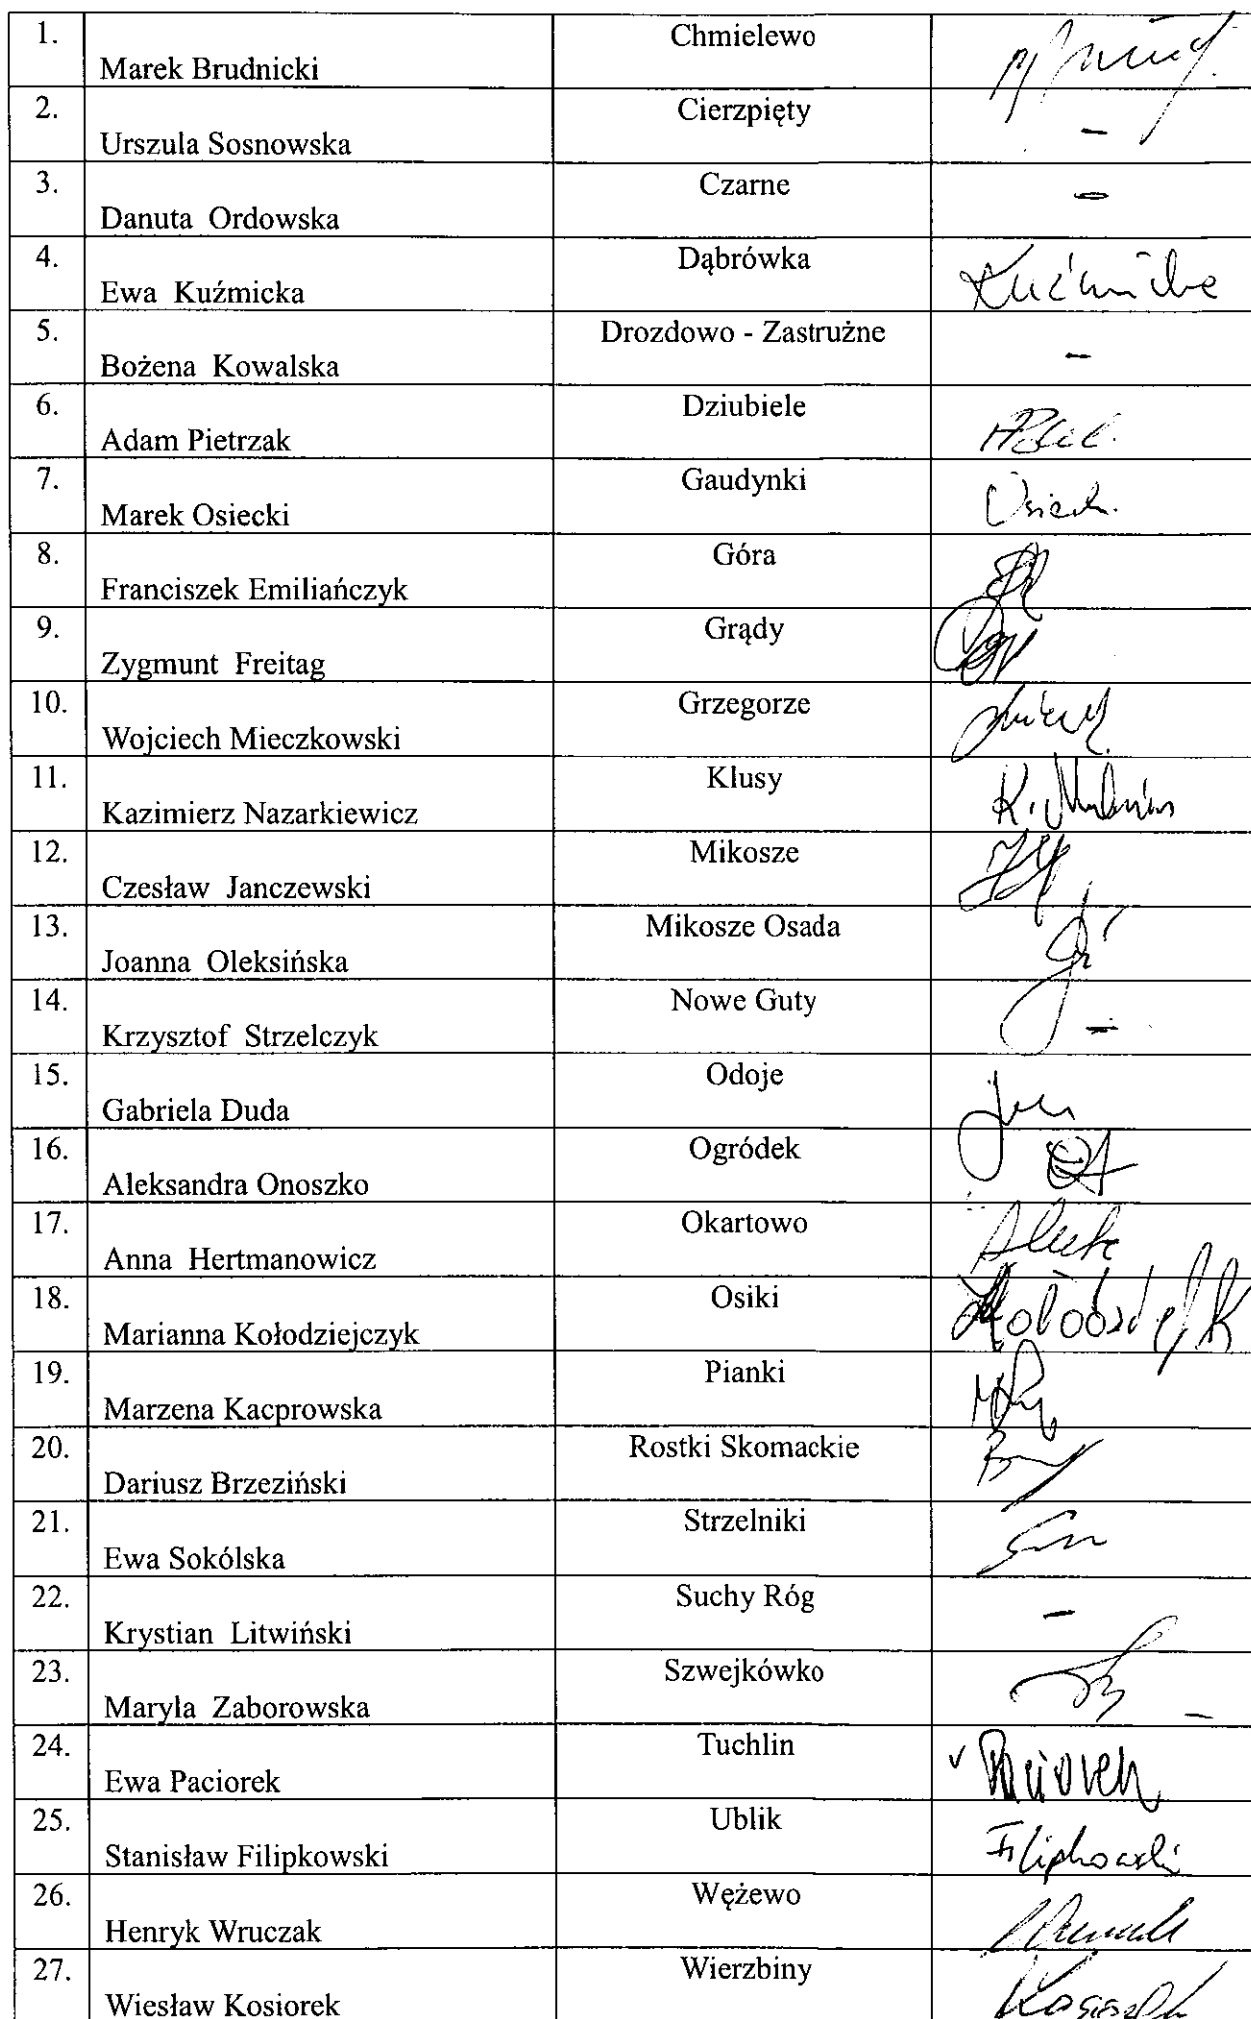 1. Marek Brudnicki Chmielewo
2. Urszula Sosnowska Cierzpięty –
3. Danuta Ordowska Czarne –
4. Ewa Kuźmicka Dąbrówka Kuźmicka
5. Bożena Kowalska Drozdowo - Zastrużne –
6. Adam Pietrzak Dziubiele
7. Marek Osiecki Gaudynki
8. Franciszek Emiliańczyk Góra
9. Zygmunt Freitag Grądy
10. Wojciech Mieczkowski Grzegorze
11. Kazimierz Nazarkiewicz Klusy
12. Czesław Janczewski Mikosze
13. Joanna Oleksińska Mikosze Osada
14. Krzysztof Strzelczyk Nowe Guty –
15. Gabriela Duda Odoje
16. Aleksandra Onoszko Ogródek
17. Anna Hertmanowicz Okartowo
18. Marianna Kołodziejczyk Osiki
19. Marzena Kacprowska Pianki
20. Dariusz Brzeziński Rostki Skomackie
21. Ewa Sokólska Strzelniki
22. Krystian Litwiński Suchy Róg –
23. Maryla Zaborowska Szwejkówko
24. Ewa Paciorek Tuchlin Paciorek
25. Stanisław Filipkowski Ublik Filipkowski
26. Henryk Wruczak Wężewo
27. Wiesław Kosiorek Wierzbiny Kosiorek